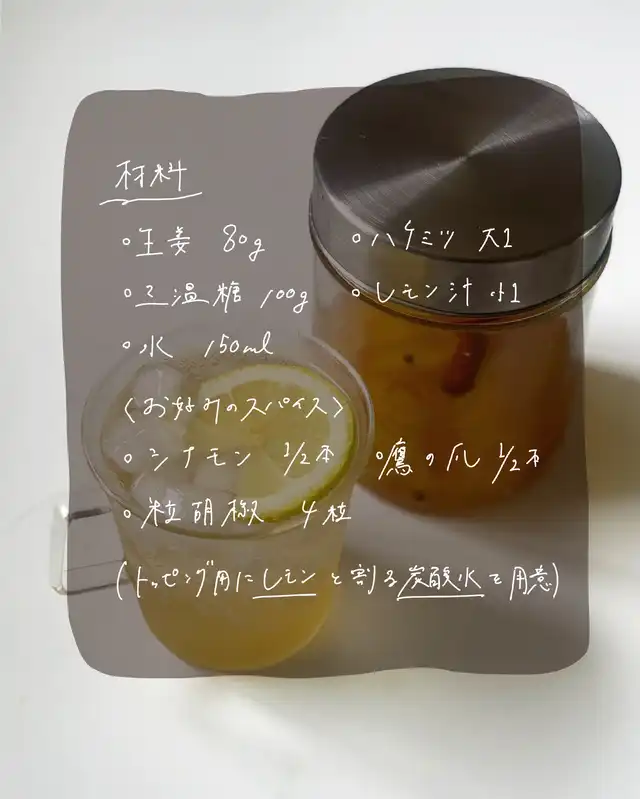 材料
○生姜 80g ○ハチミツ 大1
○三温糖 100g ○レモン汁 小1
○水 150ml
〈お好みのスパイス〉
○シナモン 1/2本 ○鷹の爪 1/2本
○粒胡椒 4粒
(トッピング用にレモンと割る炭酸水を用意)